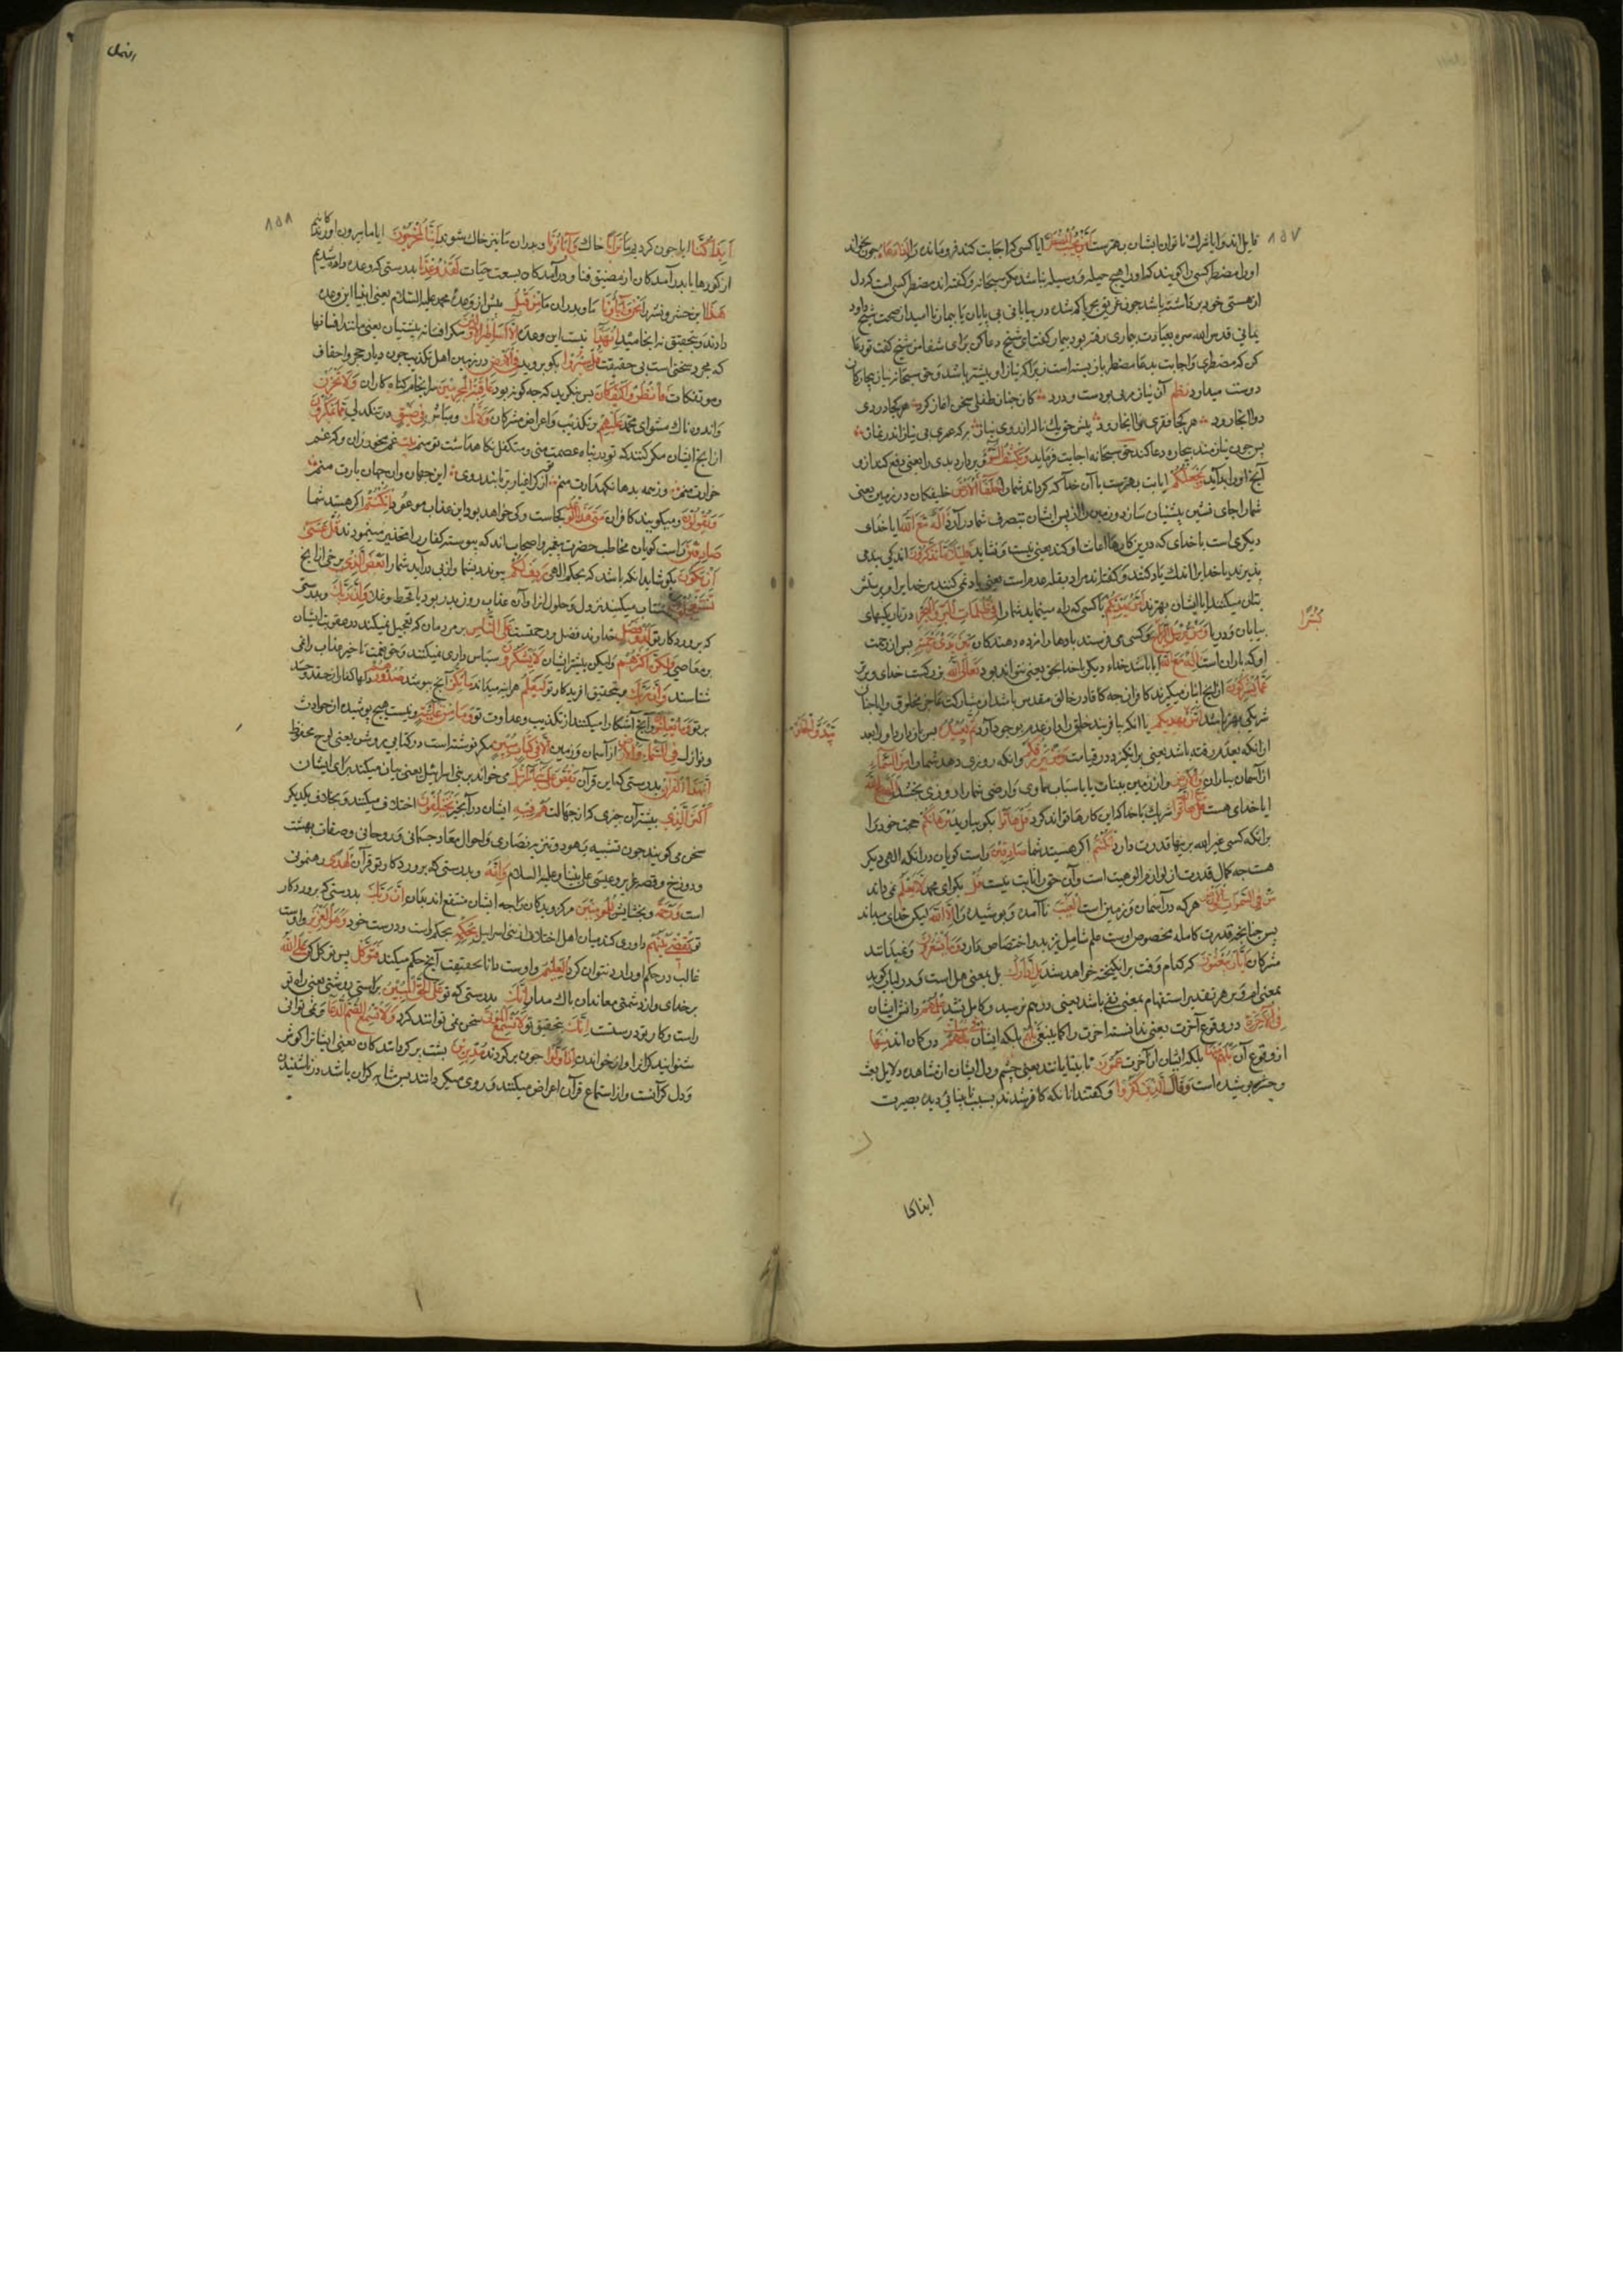 ۸۵۷
امن یجیب المضطر ایا کسی که اجابت کند فرو مانده را اذا دعاه چون بخواند
او را مضطر کسی را گویند که او را هیچ حیله و وسیله نباشد مکر حق سبحانه و گفته‌اند مضطر کسی است که دل
از هستی خود برداشته باشد چون غریق بحر یا کم شده در بیابانی بی پایان یا بیمار نا امید از صحت شیخ داود
یمانی قدس الله سره بعیادت بیماری رفته بود بیمار گفت ای شیخ دعا کن برای شفا من شیخ گفت تو دعا
کن که مضطری و اجابت بدعا مضطر باز بسته است زیرا که نیاز او بیشتر باشد و حق سبحانه نیاز بیچارگان
دوست میدارد نظم آن نیاز مریمی بودست و درد کان چنان طفلی سخن اغاز کرد هر کجا دردی
دوا انجا رود هر کجا فقری نوا انجا رود
پس چون نیازمند بیچاره دعا کند حق سبحانه اجابت فرماید و یکشف السوء و بردارد بدی را یعنی دفع کند از وی
آنچه او را بد آید و یجعلکم ایا بت بهترست یا آن خدا که گرداند شما را خلفاء الارض خلیفگان در زمین یعنی
شما را جای نشین پیشینیان سازد و زمین را از پس ایشان بتصرف شما در آرد ءاله مع الله ایا خدای
دیگری است با خدای که درین کارها اعانت او کند یعنی نیست و نشاید قلیلا ما تذکرون اندکی پند می
پذیرید یا خدایرا اندک یاد کنند و گفته‌اند مراد بقله عدم است یعنی یاد نمی کنند مر خدایرا و پرستش
بتان میکنند ایا ایشان بهترند امن یهدیکم یا کسی که راه مینماید شما را فی ظلمات البر و البحر در تاریکیهای
بیابان و دریا و من یرسل الریاح و کسی می فرستد بادها را مژده دهندگان بین یدی رحمته پیش از رحمت
بشرا
او که باران است ءاله مع الله ایا باشد خداء دیگر با خدا بحق یعنی نتواند بود تعالی الله بزرگست خدای و برتر
عما یشرکون از انچه انباز میگیرند کافران چه کافادر خالق مقدس باشد از مشارکت عاجز مخلوق و ایا چنان
شریکی بهتر باشد امن یبدؤ الخلق یا انکه بیافریند خلق را و از عدم بوجود آرد ثم یعیده پس باز دارد او را بعد
از انکه بعدم رفته باشد یعنی برانگیزد در قیامت و من یرزقکم و انکه روزی دهد شما را من السماء
از آسمان بباران و الارض و از زمین بنبات یا باسباب سماوی و ارضی شما را روزی بخشد ءاله مع الله
ایا خدای هست شریک با خدا که این کارها تواند کرد قل هاتوا بگو بیارید برهانکم حجت خود را
برانکه کسی غیر الله برینها قدرت دارد ان کنتم اگر هستید شما صادقین راست گویان در انکه الهی دیگر
هست چه کمال قدرت از لوازم الوهیت است و آن حق را ثابت نیست قل بگو ای محمد لا یعلم نمی داند
من فی السموات و الارض هر که در آسمان و زمین است الغیب نا آمده و پوشیده را الا الله لیکن خدای میداند
پس چنانچه قدرت کامله مخصوص اوست علم شامل نیز بدو اختصاص دارد و ما یشعرون و نمیدانند
مشرکان ایان یبعثون که کدام وقت برانگیخته خواهد شد بل ادارک بل بمعنی هل است و در لباب گوید
بمعنی ام و بر هر تقدیر استفهام بمعنی نفی باشد یعنی در هم نرسید و کامل نشد علمهم دانش ایشان
فی الآخرة در وقوع آخرت یعنی ندانسته اخرت را کما ینبغی بل بلکه ایشان هم فی شک در گمان اند منها
از وقوع آن بل هم منها بلکه ایشان از آخرت عمون نابینایانند یعنی چشم و دل ایشان از مشاهده دلایل بعث
و حشر پوشیده است و قال الذین کفروا و گفتند انانکه کافر شدند بسبب نابینایی دیده بصیرت
ایذا کنا
۸۵۸
ایذا کنا ایا چون گردیم ما ترابا خاک و آباؤنا و پدران ما نیز خاک شوند ائنا لمخرجون ایا ما بیرون آوردگانیم
از گورها یا بدر آمدگان از مضیق فنا و در آمدگان بسعت حیات لقد وعدنا بدرستی که وعده داده شدیم
هذا این حشر و نشر نحن و آباؤنا ما و پدران ما من قبل پیش از وعدهٔ محمد علیه السلام یعنی انبیا این وعده
دادند و بتحقیق نه انجامید ان هذا نیست این وعده الا اساطیر الاولین مکر افسانه پیشینیان یعنی مانند افسانها
که مجرد سخنی است بی حقیقت قل سیروا بگو بروید فی الارض در زمین اهل تکذیب چون دیار حجر و احقاف
و موتفکات فانظروا کیف کان پس بنگرید که چه گونه بود عاقبة المجرمین سر انجام گناه کاران و لا تحزن
و اندوه ناک مشو ای محمد علیهم بر تکذیب و اعراض مشرکان و لا تکن و مباش فی ضیق در تنگدلی مما یمکرون
از انچ ایشان مکر کنند که تو در پناه عصمت منی و متکفل نگاهداشت تو منم بیت غم مخور زان و که غم
خوارت منم وز همه بدها نگهدارت منم از کر اغیار برتابند روی این جهان و آن جهان یارت منم
و یقولون و میگویند کافران متی هذا الوعد کجاست و کی خواهد بود این عذاب موعود ان کنتم اگر هستید شما
صادقین راست گویان مخاطب حضرت پیغمبر و اصحاب اند که پیوسته کفار را تحذیر مینمودند قل عسی
ان یکون بگو شاید انکه باشد که بحکم الهی ردف لکم پیوندد بشما و از پی در آید شما را بعض الذی برخی از انچ
تستعجلون شتاب میکنید بنزول و حلول انرا و آن عذاب روز بدر بود یا قحط و غلا و ان ربک و بدرستی
که پروردگار تو لذو فضل خداوند فضل و رحمتست علی الناس بر مردمان که تعجیل نمیکند در عقوبت ایشان
بر معاصی و لکن اکثرهم و لیکن بیشتر ایشان لا یشکرون سپاس داری نمیکنند و حق نعمت تاخیر عذاب را نمی
شناسند و ان ربک و بتحقیق افریدگار تو لیعلم هر اینه میداند ما تکن آنچ پوشد صدورهم دلها کفار از حقد و حسد
بر تو و ما یعلنون و آنچ آشکارا میکنند از تکذیب و عداوت تو و ما من غائبة و نیست هیچ پوشیده از حوادث
و نوازل فی السماء و الارض از آسمان و زمین الا فی کتاب مبین مکر نوشته است در کتابی روشن یعنی لوح محفوظ
ان هذا القرآن بدرستی که این قرآن یقص علی بنی اسرائیل می خواند بر بنی اسرائیل یعنی بیان میکند برای ایشان
اکثر الذی بیشتر آن چیزی که از جهالت هم فیه ایشان در آنچیز یختلفون اختلاف میکنند و بخلاف یکدیگر
سخن می گویند چون تشبیه یهود و تنزیه نصاری و احوال معاد جسمانی و روحانی و صفات بهشت
و دوزخ و قصه عزیر و عیسی علی نبینا و علیه السلام و انه و بدرستی که پروردگار تو قرآن لهدی رهنمونی
است و رحمة و بخشایش للمؤمنین مر گرویدگان را چه ایشان منتفع اند بدان ان ربک بدرستی که پروردگار
تو یقضی بینهم داوری کند میان اهل اختلاف از بنی اسرائیل بحکمه بحکم راست و درست خود و هو العزیز و اوست
غالب در حکم او را رد نتوان کرد العلیم و اوست دانا بحقیقت آنچ حکم میکند فتوکل پس توکل کن علی الله
بر خدای و از دشمنی معاندان باک مدار انک بدرستی که تو علی الحق المبین براستی روشنی یعنی راه تو
راست و کار تو درست انک بتحقیق تو لا تسمع الموتی سخن نمی توانند کرد و لا تسمع الصم الدعاء و نمی توانی
شنوانید کرانرا آواز خواندن اذا ولوا چون برگردند مدبرین پشت برگردانندگان یعنی ایشانرا گوش
و دل کرانست و از استماع قرآن اعراض میکنند و روی میگردانند پس مشابه کران باشد در ناشنیدن